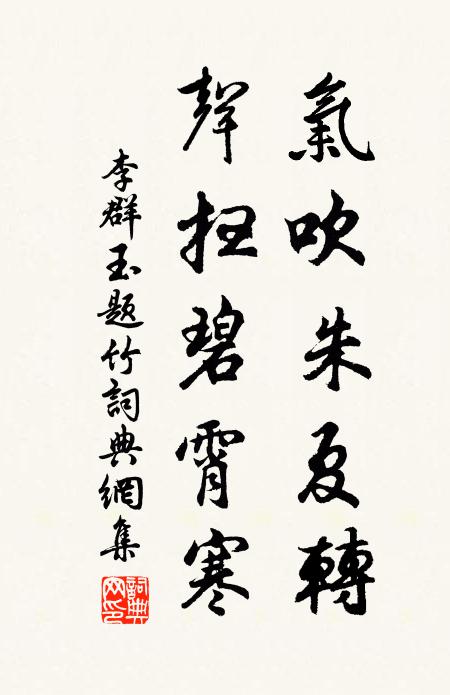 氣吹朱夏轉
聲扫碧霄寒
李群玉題竹詞典網集
詞典網印